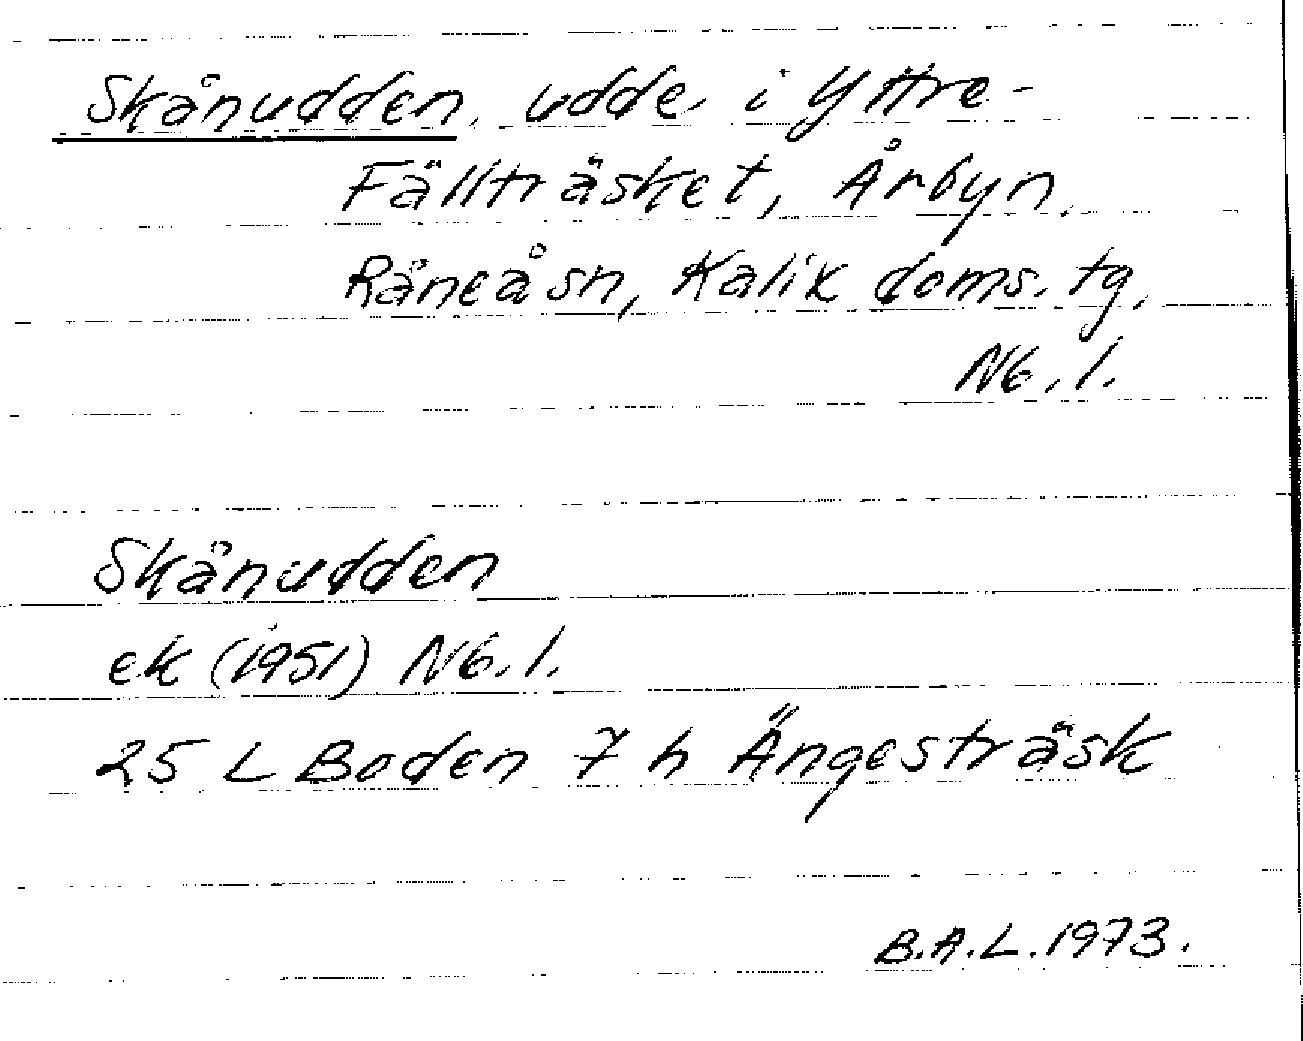 Skånudden, udde i Yttre-
Fällträsket, Årbyn,
Råneå sn, Kalix doms. tg,
Nb. l.
Skånudden
ek (1951) Nb. l.
25 L Boden 7 h Ängesträsk
B.A.L. 1973.